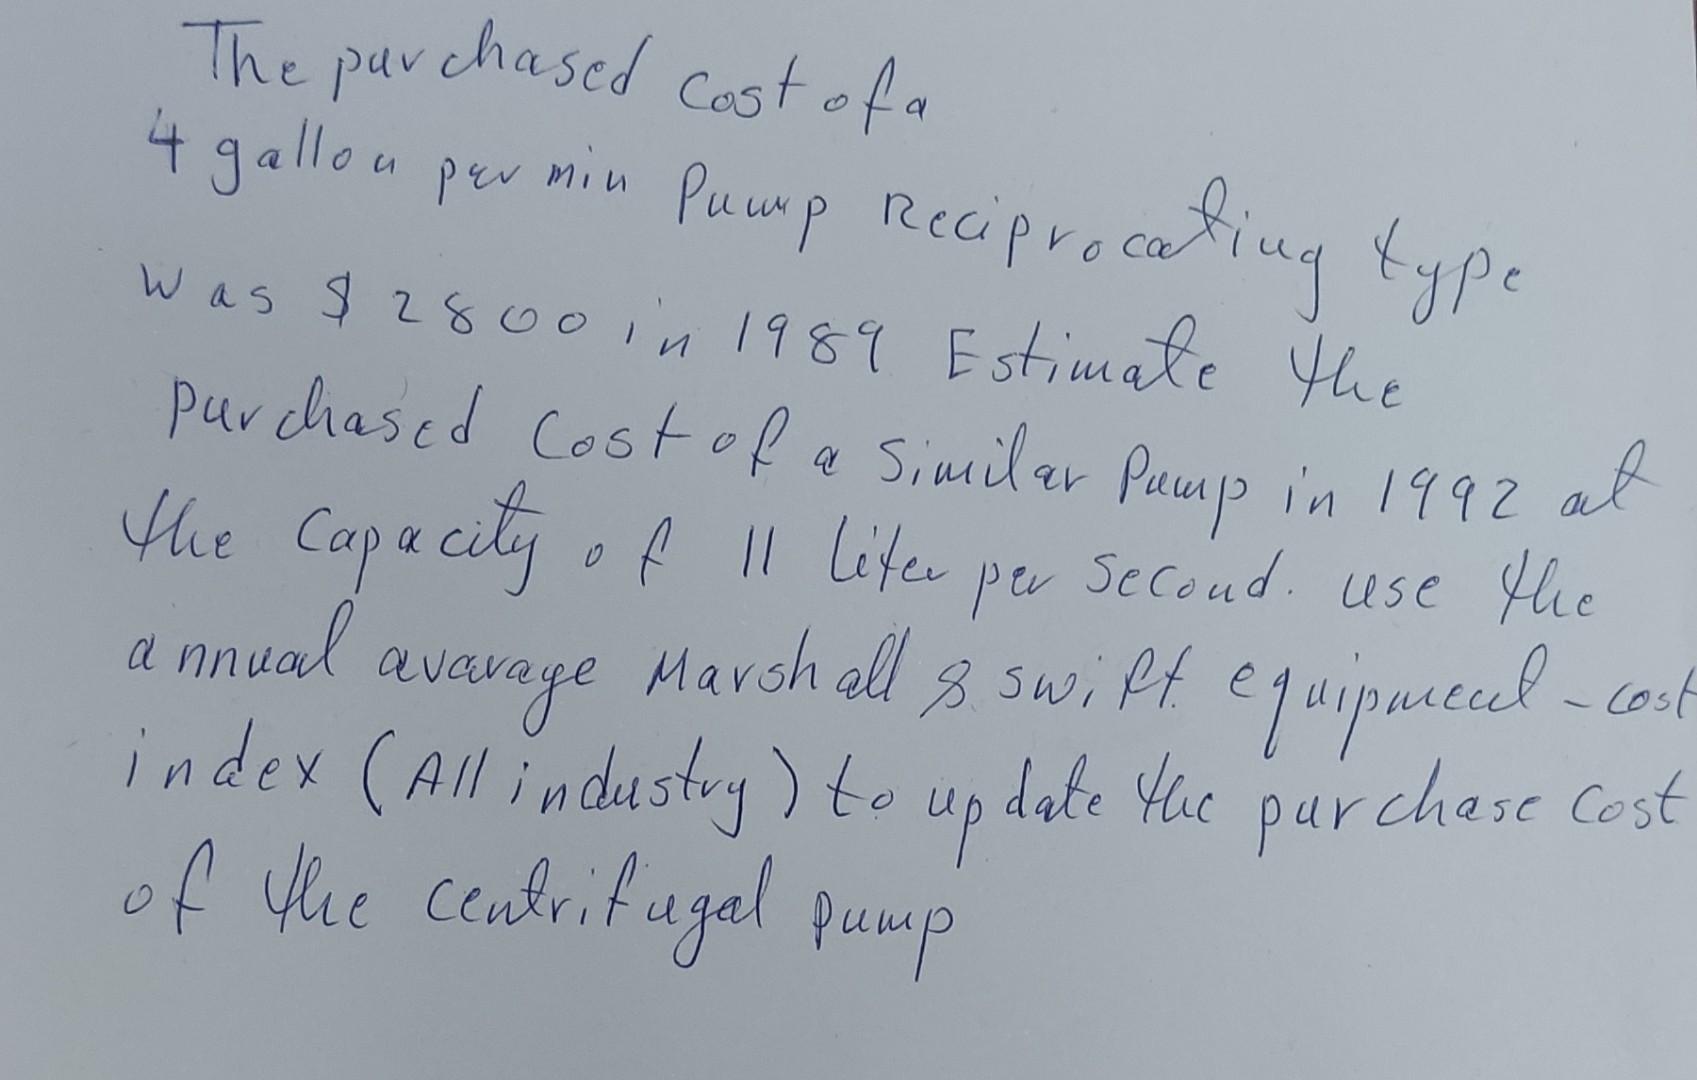 The purchased cost of a
4 gallon per min Pump Reciprocating type
was $ 2800 in 1989 Estimate the
purchased cost of a similar Pump in 1992 at
the capacity of 11 liter per second. use the
annual avarage Marshall & swift equipment - cost
index (All industry) to update the purchase cost
of the centrifugal pump